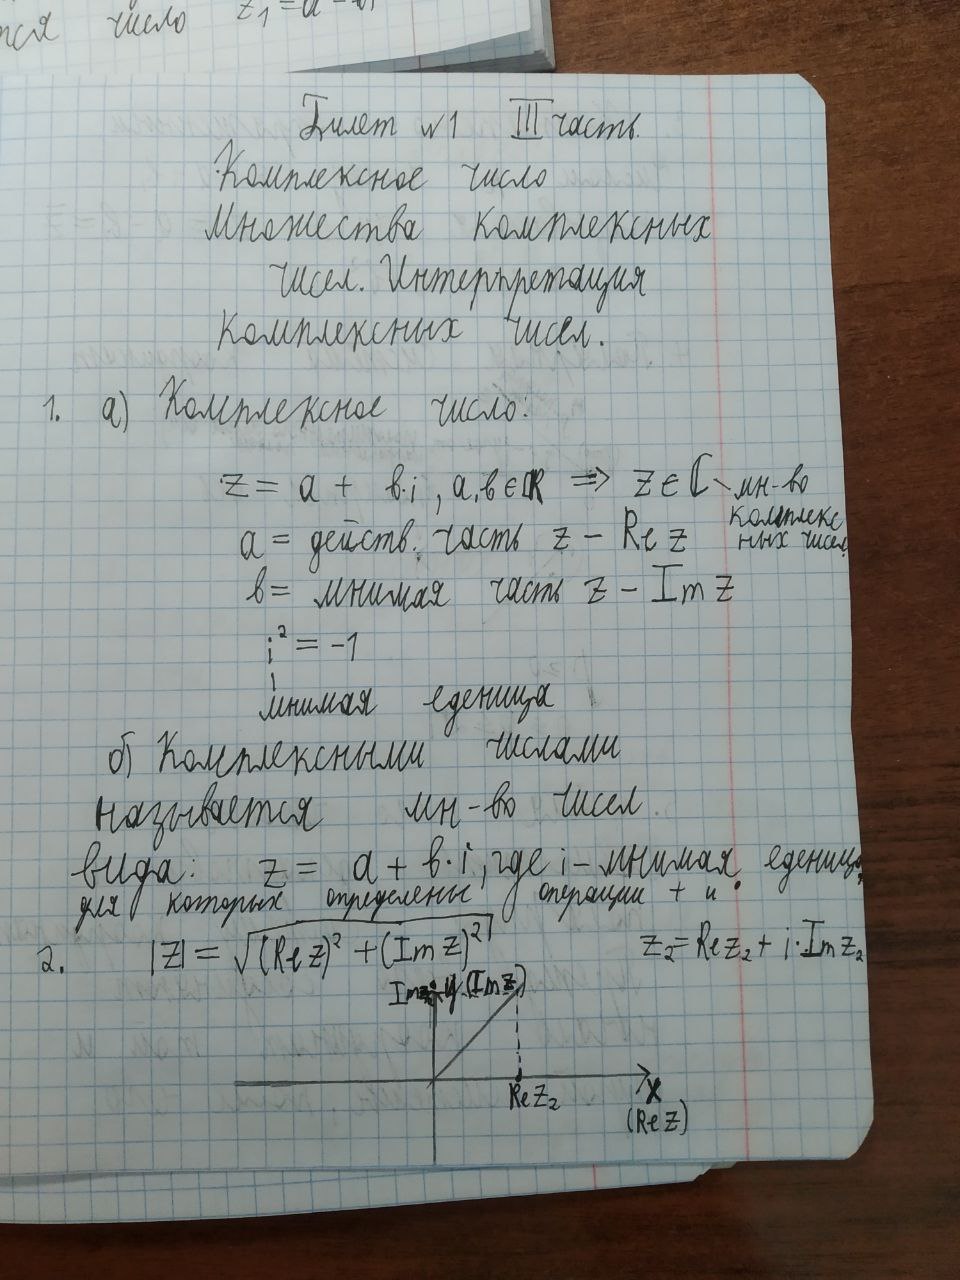 тся число z₁ = a - bi
Билет №1 III часть.
Комплексное число
Множества комплексных
чисел. Интерпретация
Комплексных чисел.
1. а) Комплексное число:
z = a + b·i, a, b ∈ ℝ ⇒ z ∈ ℂ - мн-во
комплекс
ных чисел
a = действ. часть z - Re z
b = мнимая часть z - Im z
i² = -1
мнимая еденица
б) Комплексными числами
называется мн-во чисел
вида: z = a + b·i, где i - мнимая еденица,
для которых определены операции + и •
2. |z| = √(Re z)² + (Im z)² z₂ = Re z₂ + i·Im z₂
y (Im z)
Re z₂ x
(Re z)